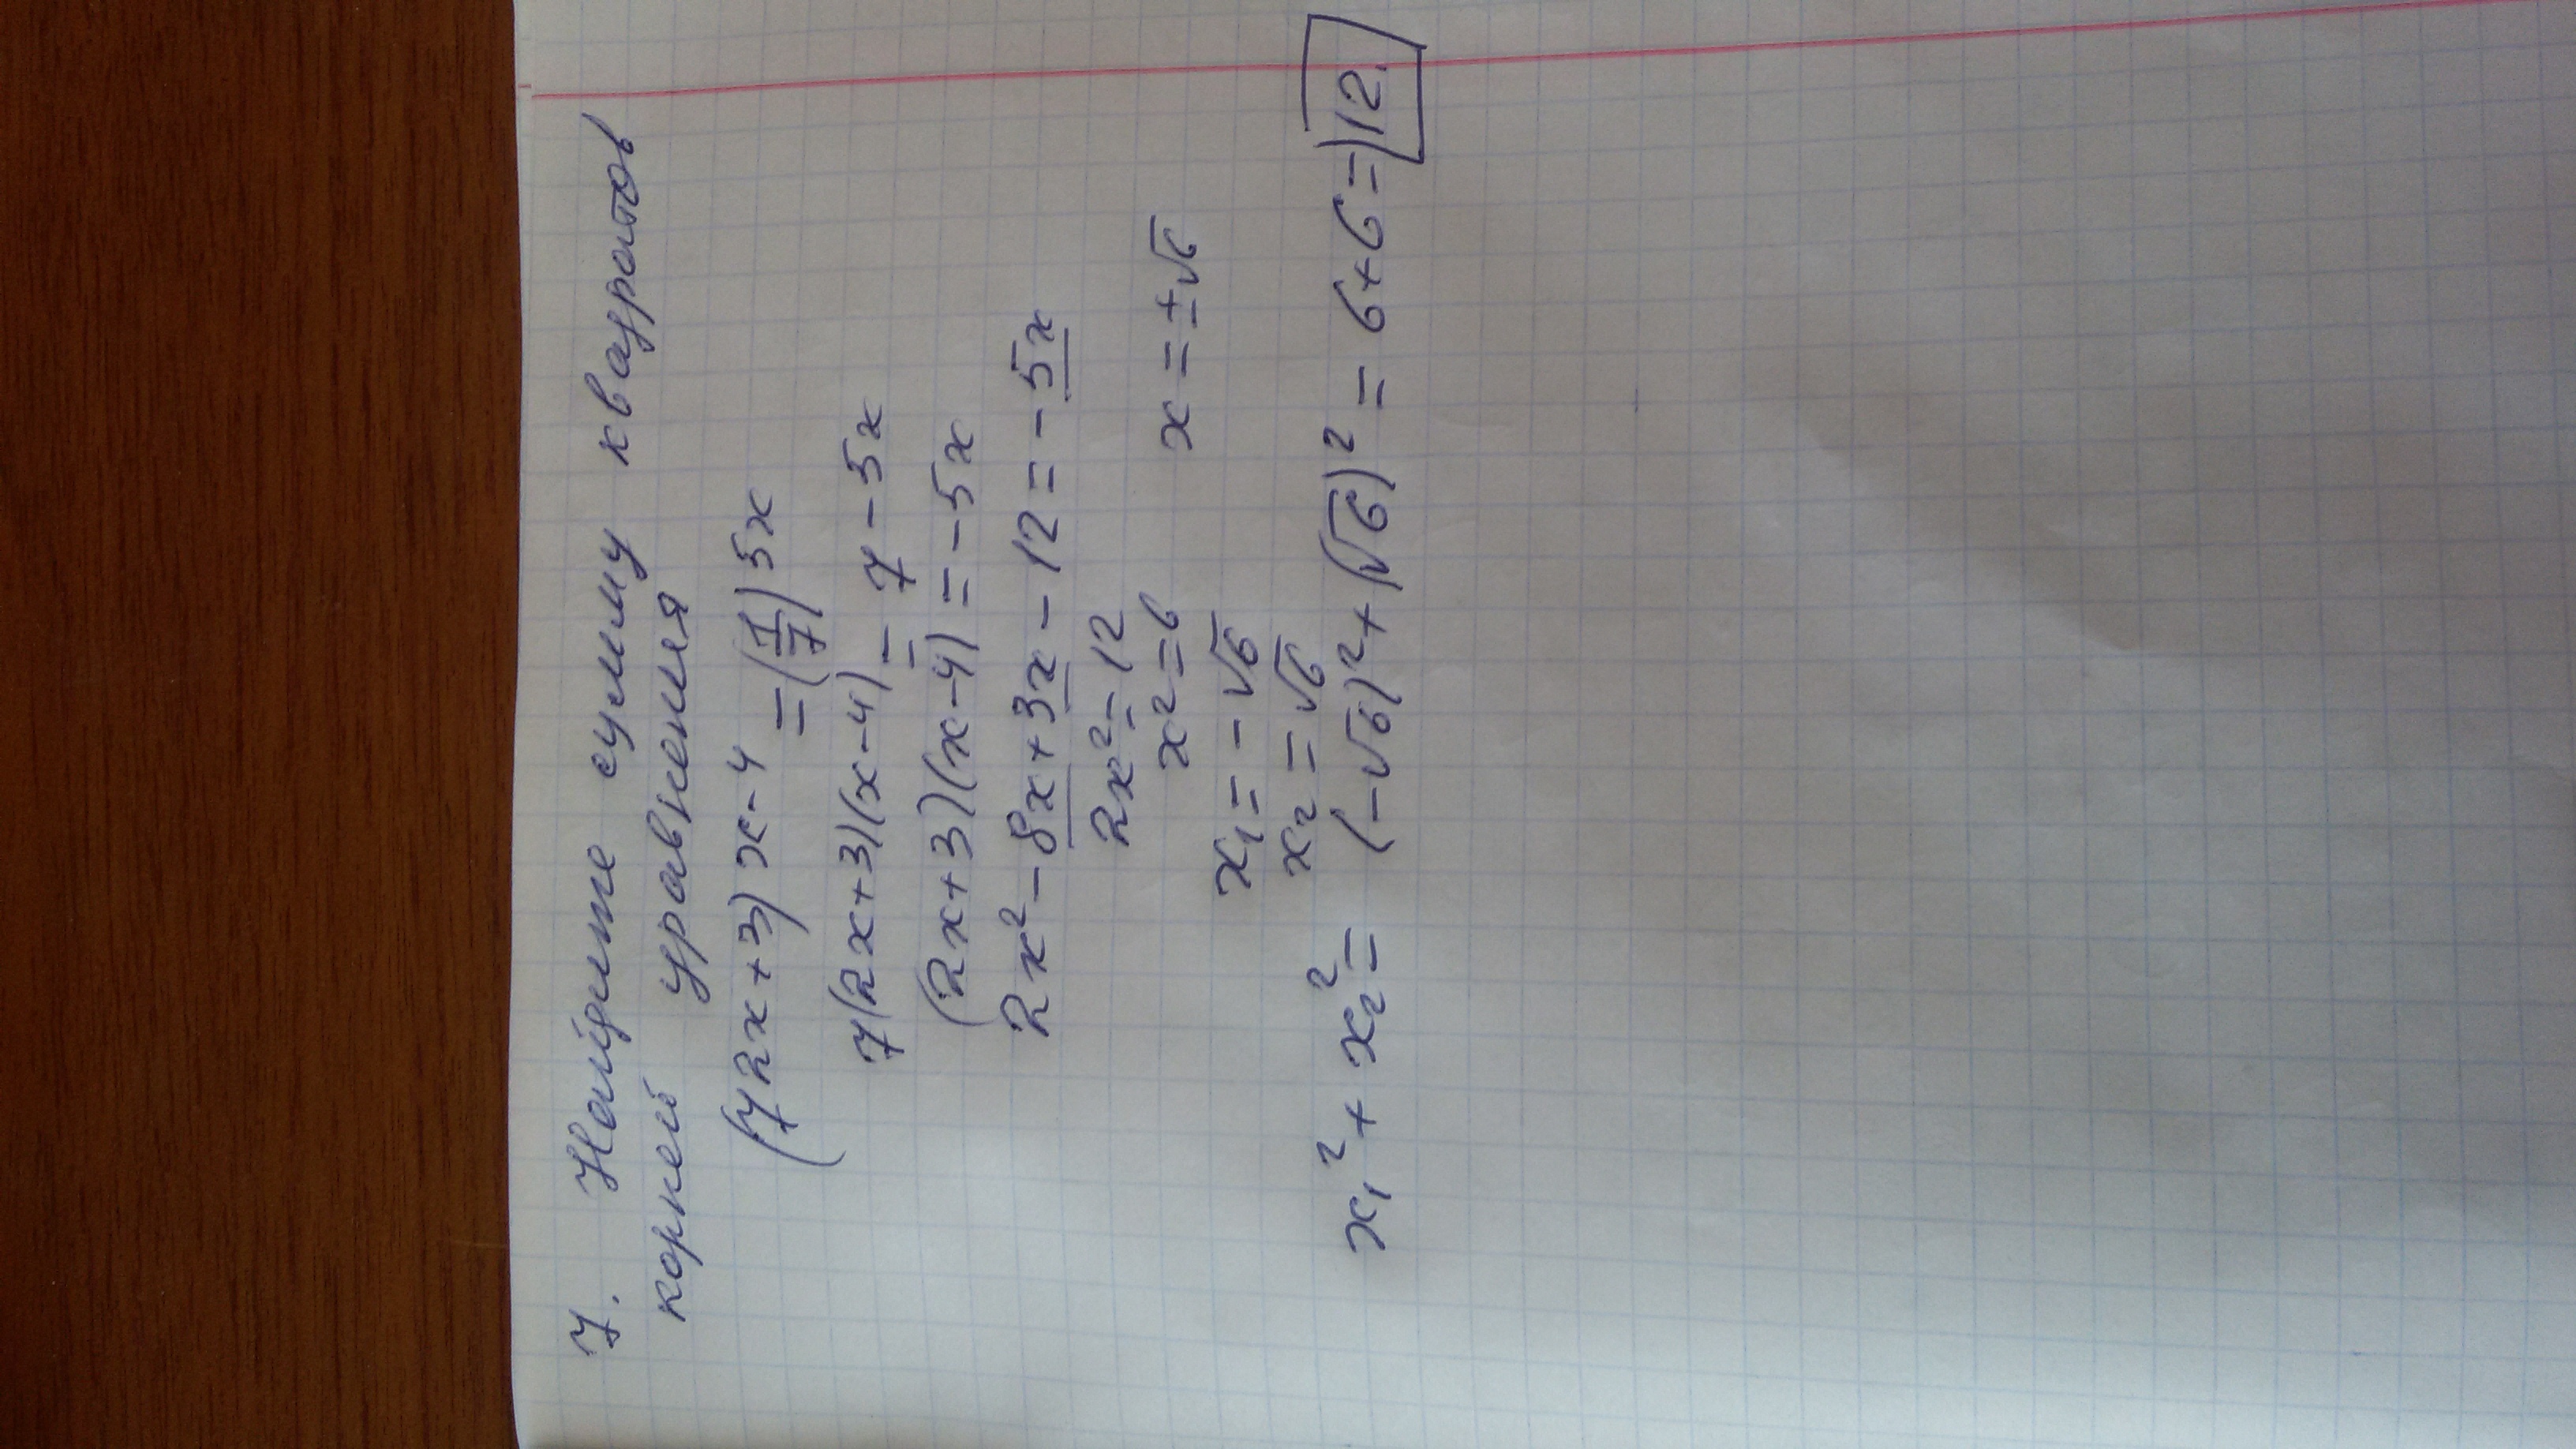 7. Найдите сумму квадратов
корней уравнения
(7 2x+3) x-4 = (1/7) 5x
7(2x+3)(x-4) = 7 -5x
(2x+3)(x-4) = -5x
2x² - 8x + 3x - 12 = -5x
2x² = 12
x² = 6 x = ±√6
x₁ = -√6
x₂ = √6
x₁² + x₂² = (-√6)² + (√6)² = 6+6 = 12.